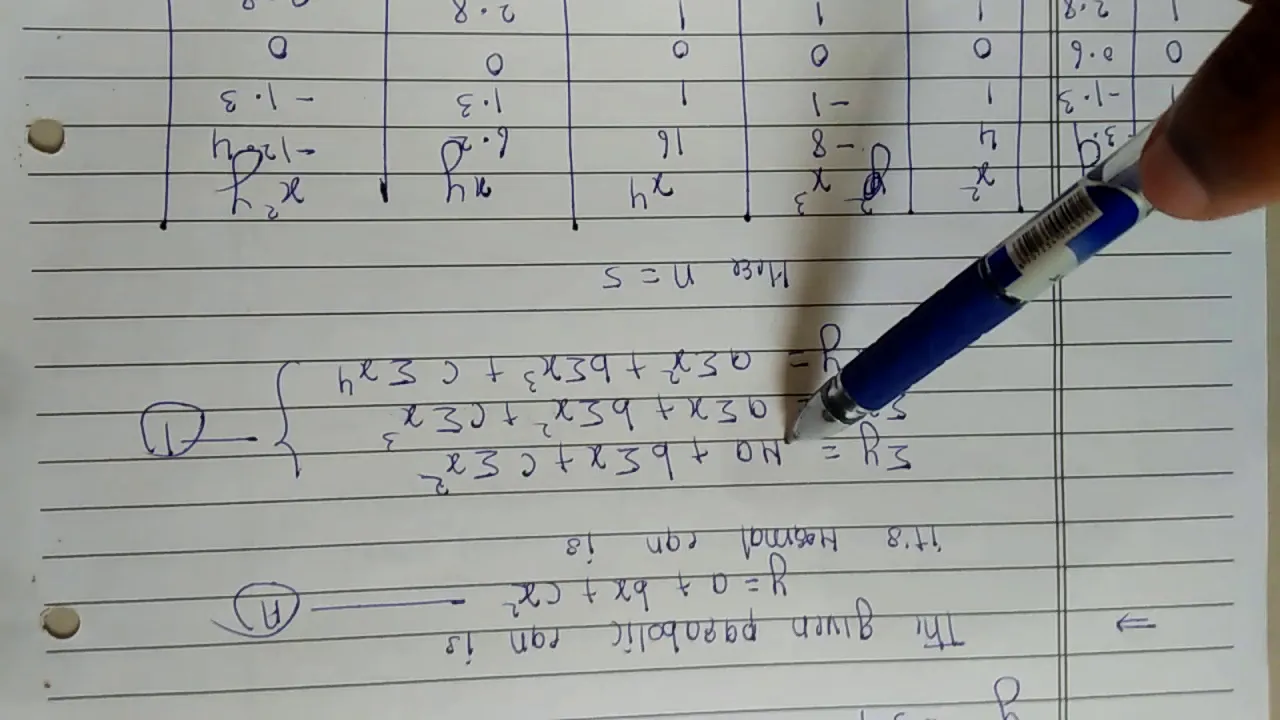 y
⇒ The given parabolic eqn is
y = a + bx + cx² — A
it's Normal eqn is
Σy = Na + bΣx + cΣx²
= aΣx + bΣx² + cΣx³ — 1
y = aΣx² + bΣx³ + cΣx4
Here n = 5
y x² x³ x4 xy x²y
4 -8 16 6.2 -12.4
-1.3 1 -1 1 1.3 -1.3
0 0.6 0 0 0 0 0
1 2.8 1 1 1 2.8